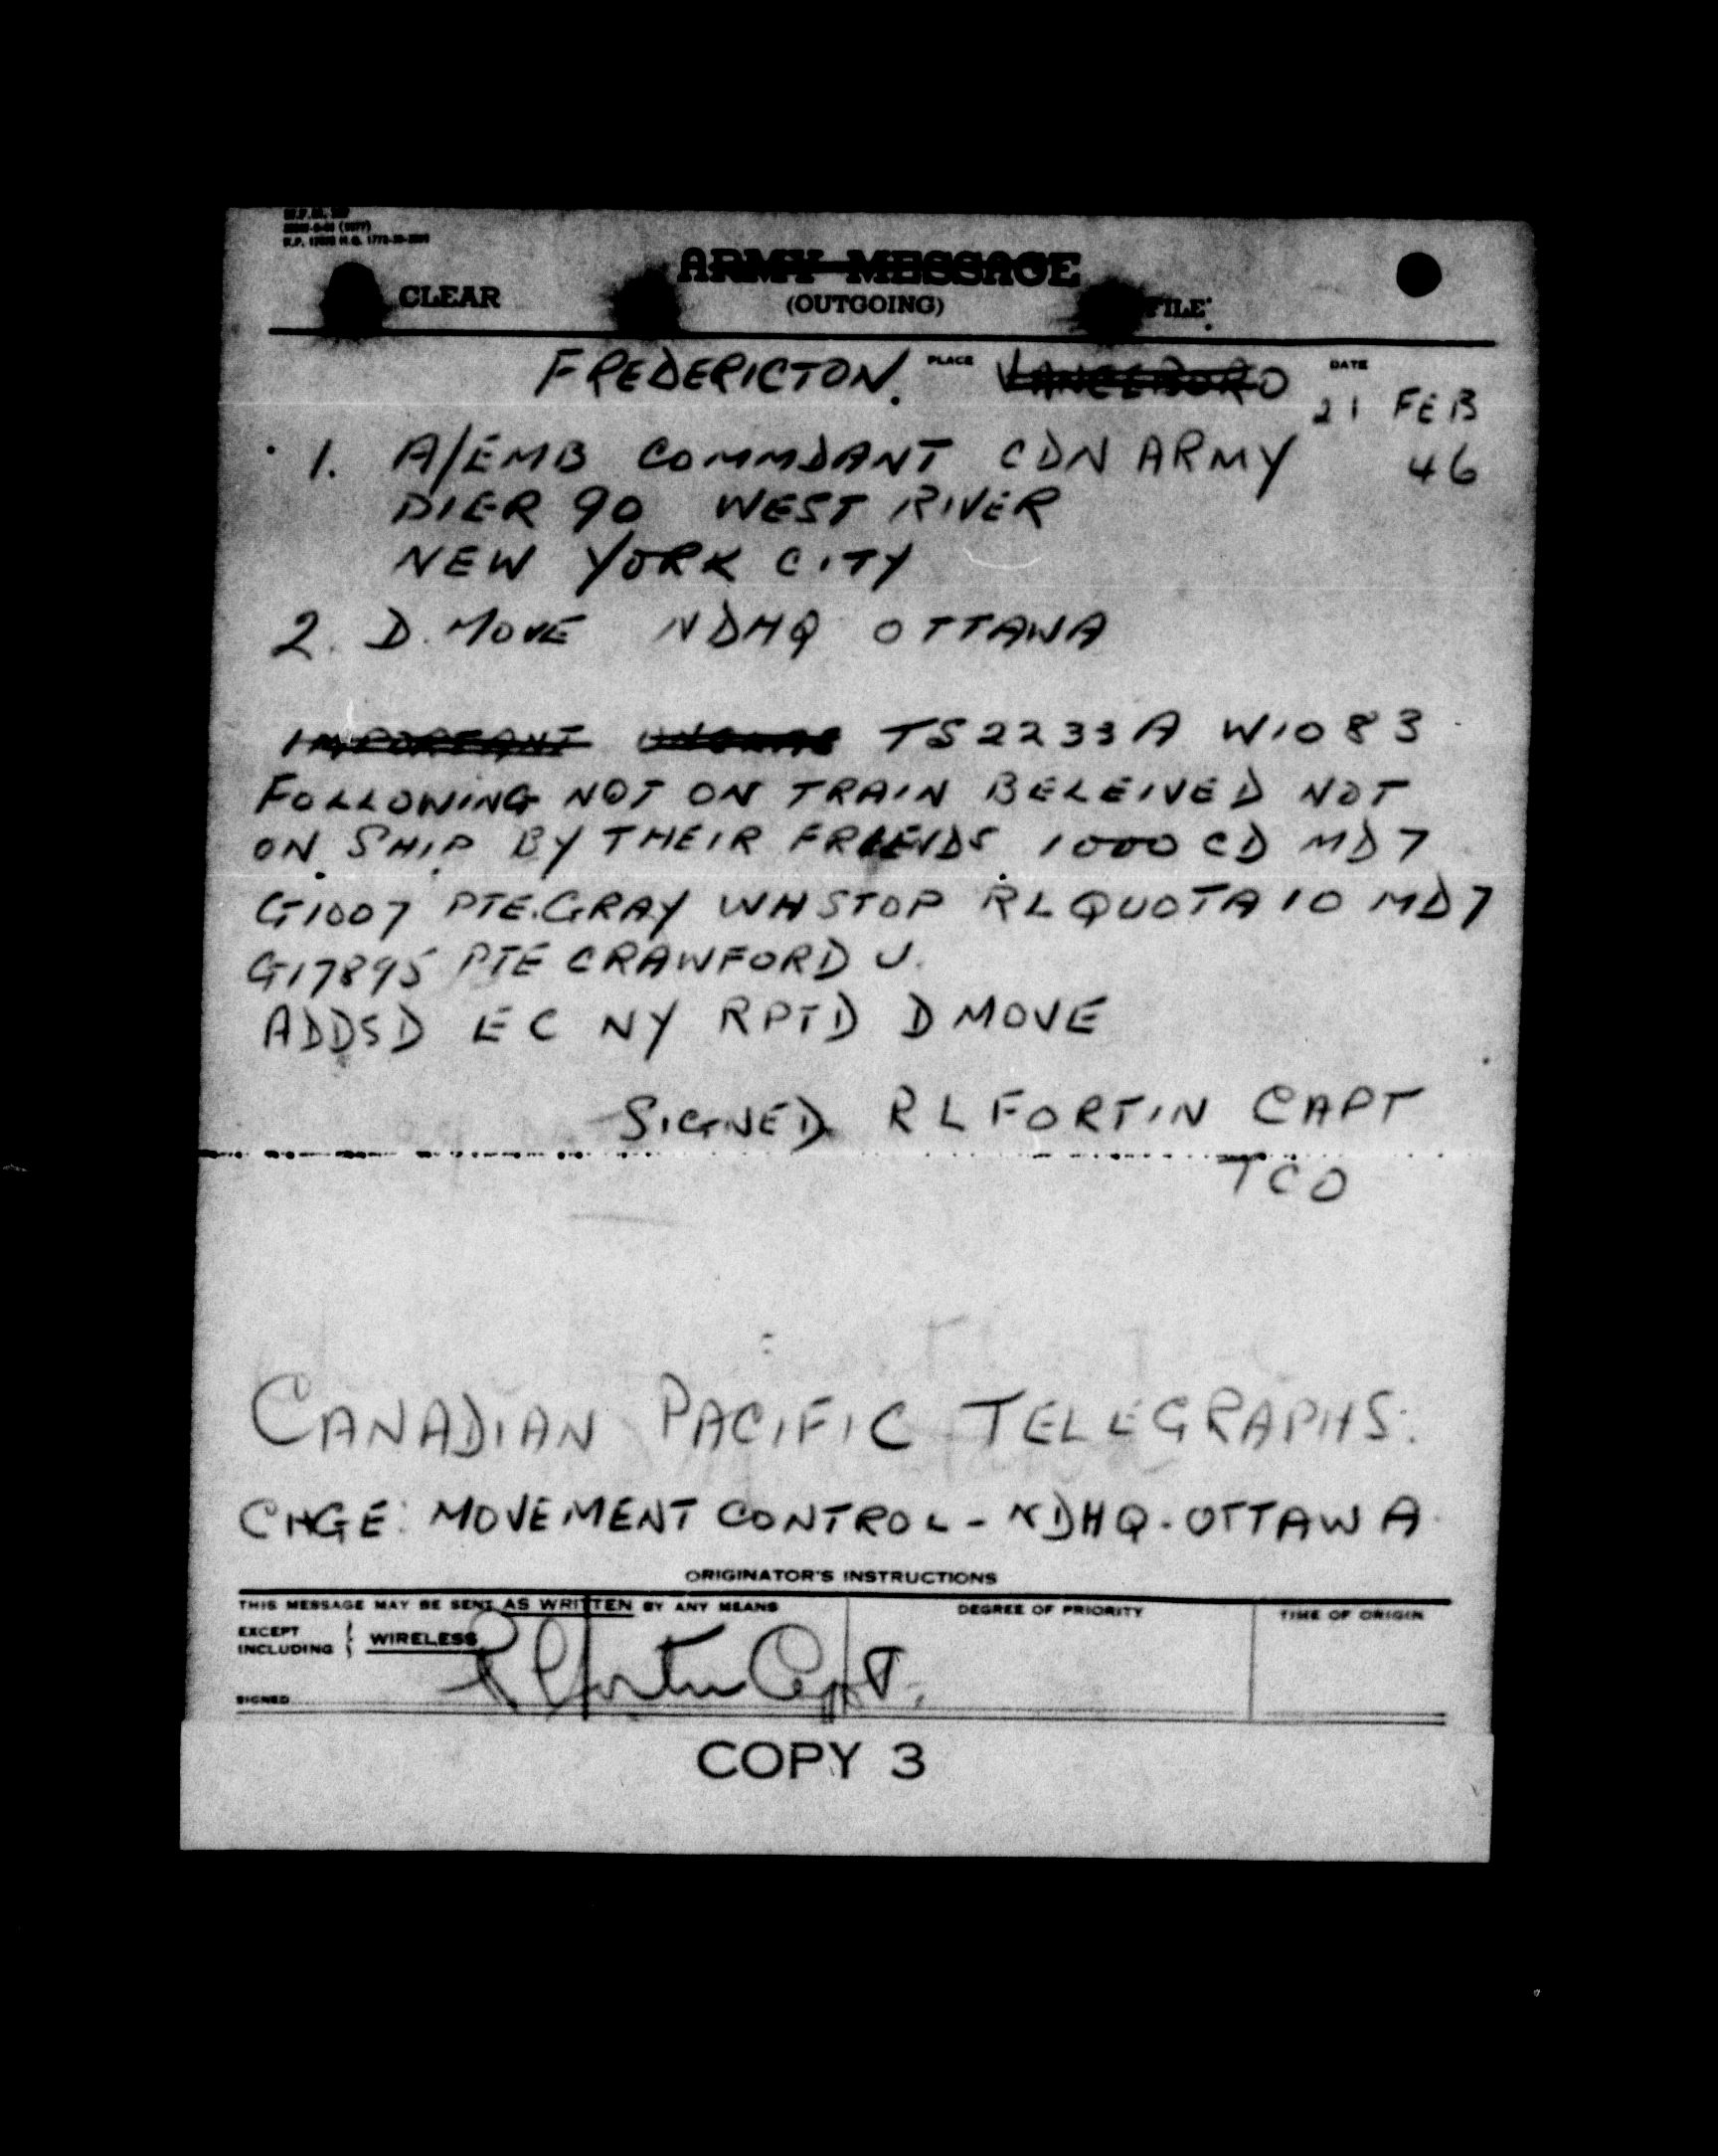 ARMY MESSAGE
CLEAR (OUTGOING) FILE
FREDERICTON. PLACE VANCEBORO DATE
21 FEB
1. A/EMB COMMDANT CDN ARMY 46
PIER 90 WEST RIVER
NEW YORK CITY
2. D. MOVE NDHQ OTTAWA
IMPORTANT TS2233A W1083
FOLLOWING NOT ON TRAIN BELEIVED NOT
ON SHIP BY THEIR FRIENDS 1000 CD MD7
G1007 PTE. GRAY WH STOP RL QUOTA 10 MD7
G17895 PTE CRAWFORD J.
ADDSD EC NY RPTD D MOVE
SIGNED R L FORTIN CAPT
TCO
CANADIAN PACIFIC TELEGRAPHS.
CHGE: MOVEMENT CONTROL - NDHQ - OTTAWA
ORIGINATOR'S INSTRUCTIONS
THIS MESSAGE MAY BE SENT AS WRITTEN BY ANY MEANS DEGREE OF PRIORITY TIME OF ORIGIN
EXCEPT
INCLUDING { WIRELESS
SIGNED R L Fortin Capt.
COPY 3